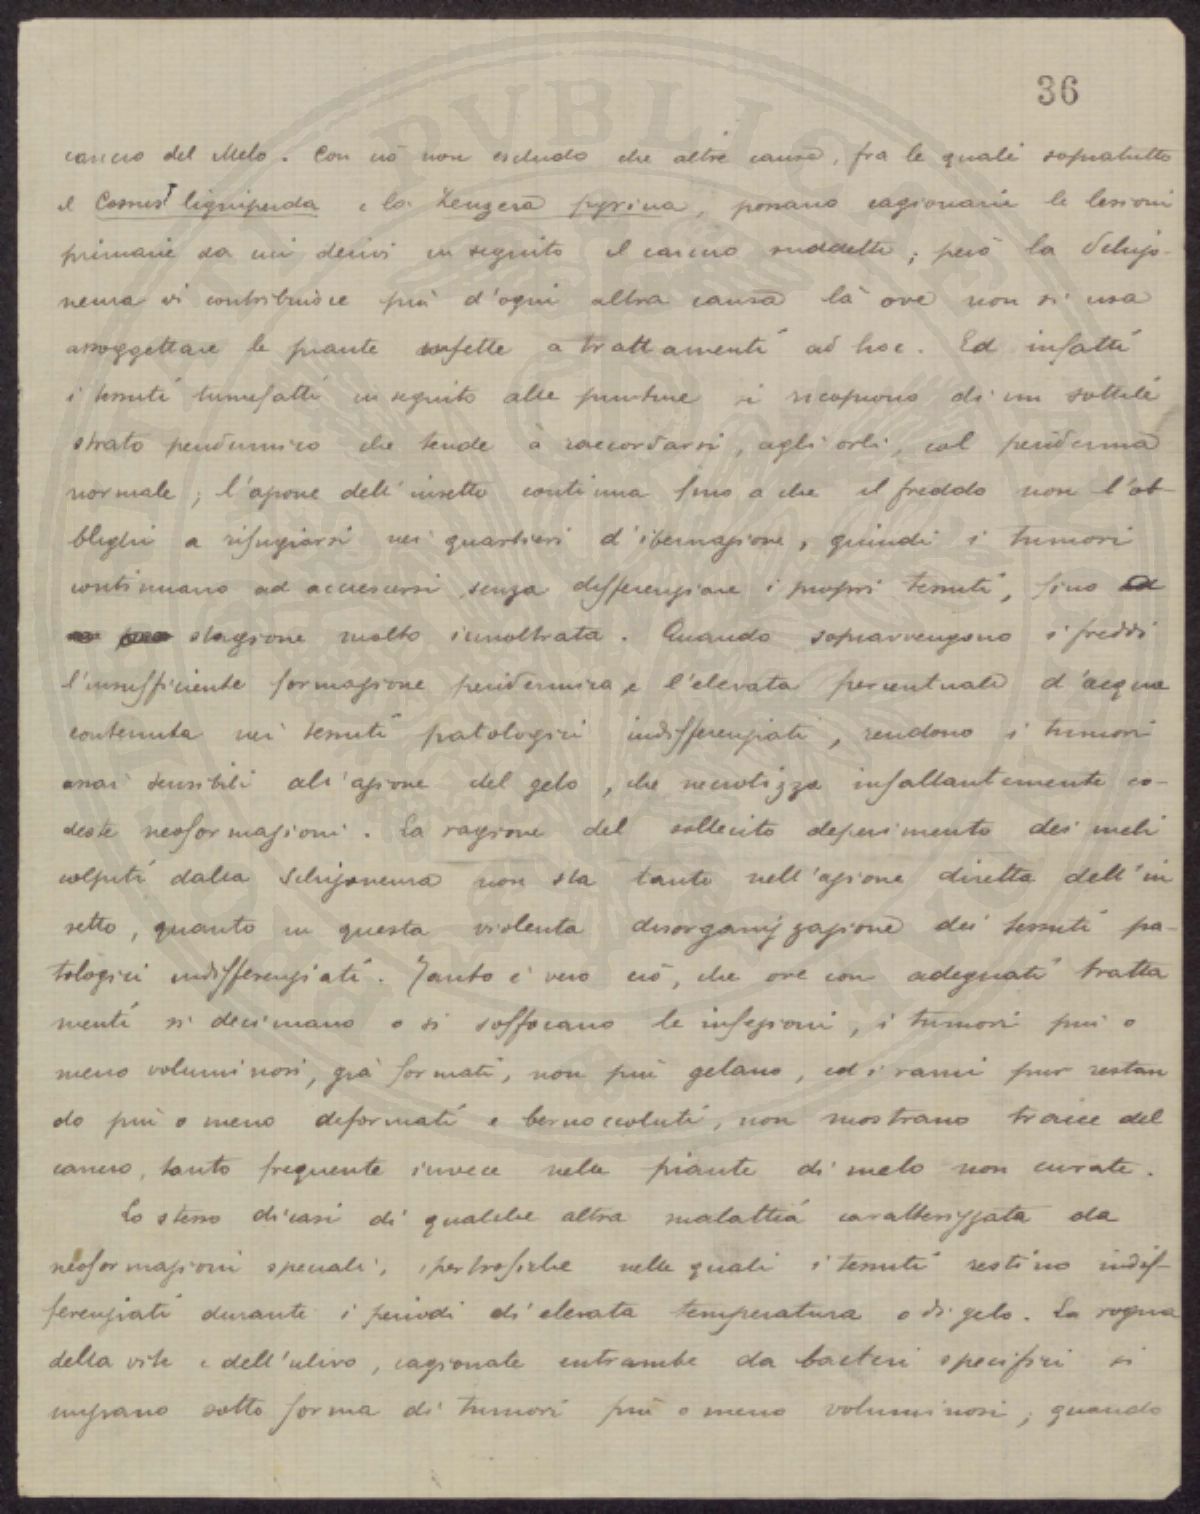 36
cancro del Melo. Con ciò non escludo che altre cause, fra le quali sopratutto
il Cossus ligniperda e la Zenzera pyrina, possano cagionarne le lesioni
primarie da cui derivi in seguito il cancro suddetto; però la Schizo-
neura vi contribuisce più d'ogni altra causa là ove non si usa
assoggettare le piante infette a trattamenti ad hoc. Ed infatti
i tessuti tumefatti in seguito alle punture si ricoprono di un sottile
strato peridermico che tende a raccordarsi, agli orli, col periderma
normale; l'azione dell'insetto continua fino a che il freddo non l'ob-
blighi a rifugiarsi nei quartieri d'ibernazione, quindi i tumori
continuano ad accrescersi senza differenziare i propri tessuti, fino ad
stagione molto innoltrata. Quando sopravvengono i freddi
l'insufficiente formazione peridermica e l'elevata percentuale d'acqua
contenuta nei tessuti patologici indifferenziati, rendono i tumori
assai sensibili all'azione del gelo, che necrotizza infallantemente co-
deste neoformazioni. La ragione del sollecito deperimento dei meli
colpiti dalla Schizoneura non sta tanto nell'azione diretta dell'in
setto, quanto in questa violenta disorganizzazione dei tessuti pa-
tologici indifferenziati. Tanto è vero ciò, che ove con adeguati tratta
menti si decimano o si soffocano le infezioni, i tumori più o
meno voluminosi, già formati, non più gelano, ed i rami pur restan
do più o meno deformati e bernoccoluti, non mostrano tracce del
cancro, tanto frequente invece nelle piante di melo non curate.
Lo stesso dicasi di qualche altra malattia caratterizzata da
neoformazioni speciali, ipertrofiche nelle quali i tessuti restino indif-
ferenziati durante i periodi di elevata temperatura o di gelo. La rogna
della vite e dell'ulivo, cagionate entrambe da bacteri specifici si
iniziano sotto forma di tumori più o meno voluminosi; quando